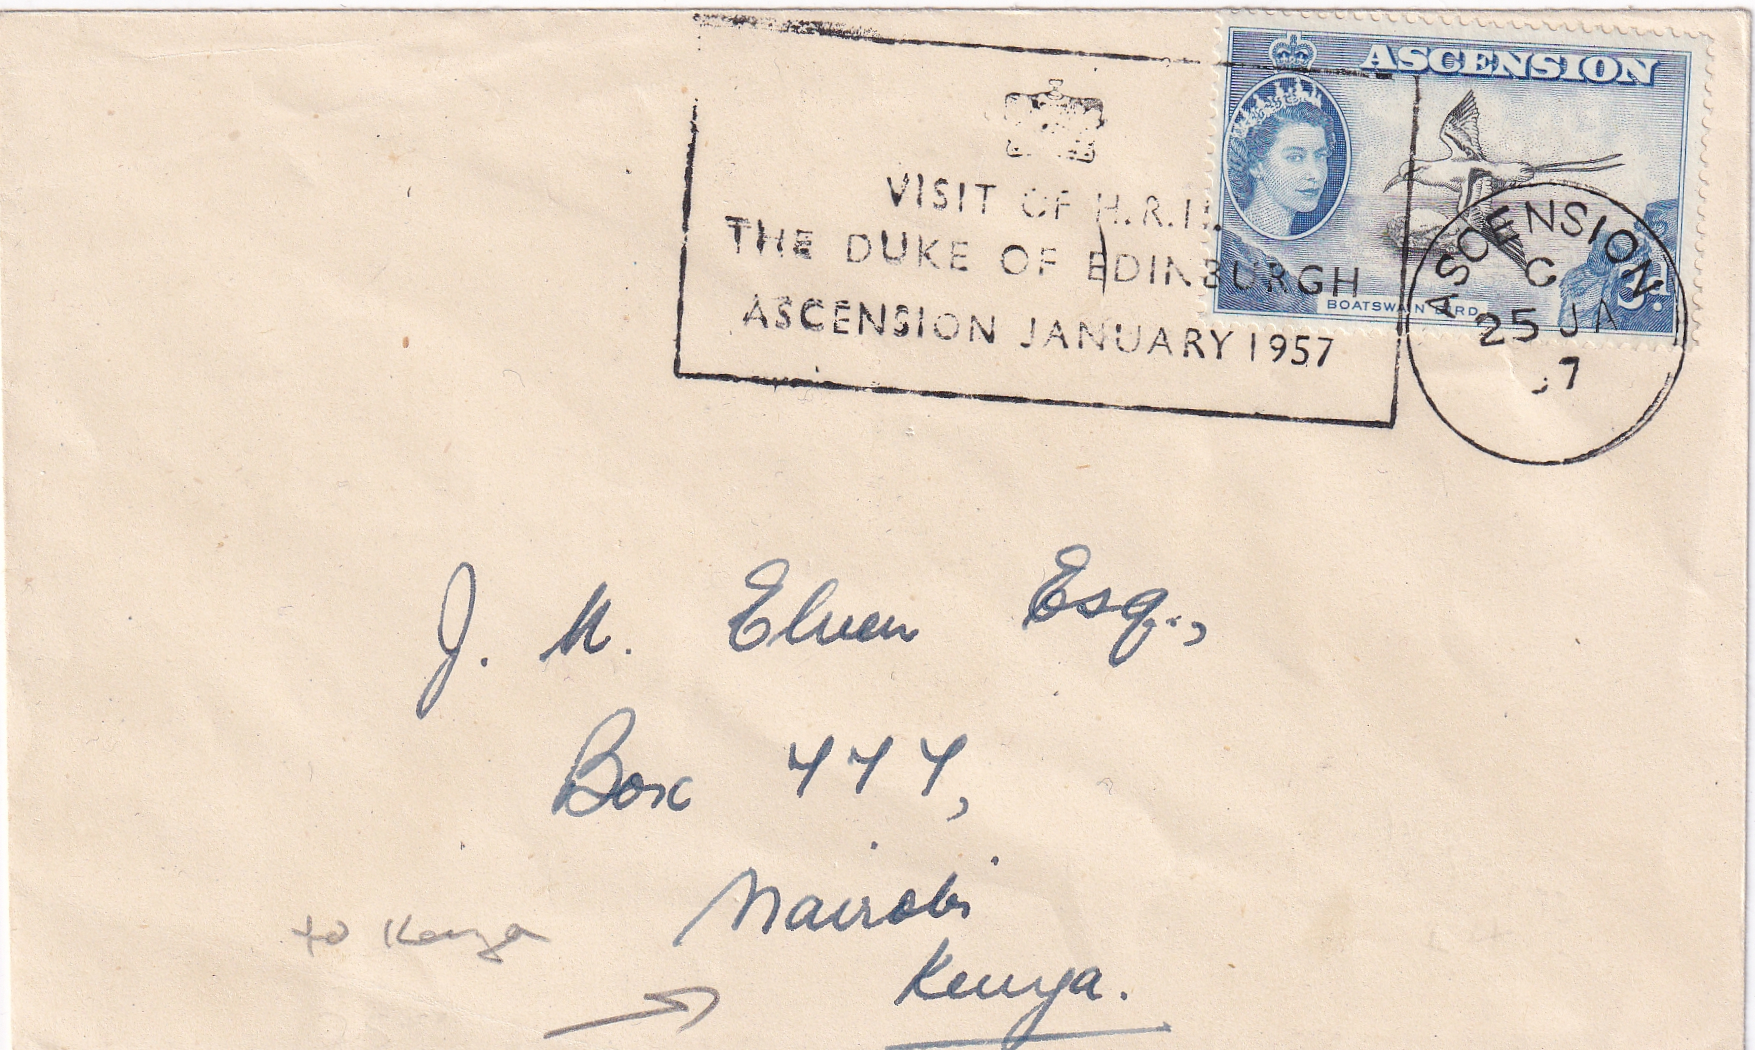 ASCENSION
VISIT OF H.R.H.
THE DUKE OF EDINBURGH
ASCENSION JANUARY 1957
BOATSWAIN BIRD
3d.
ASCENSION
C
25 JA
57
J. M. Elven Esq.,
Box 777,
Nairobi
Kenya.
to Kenya